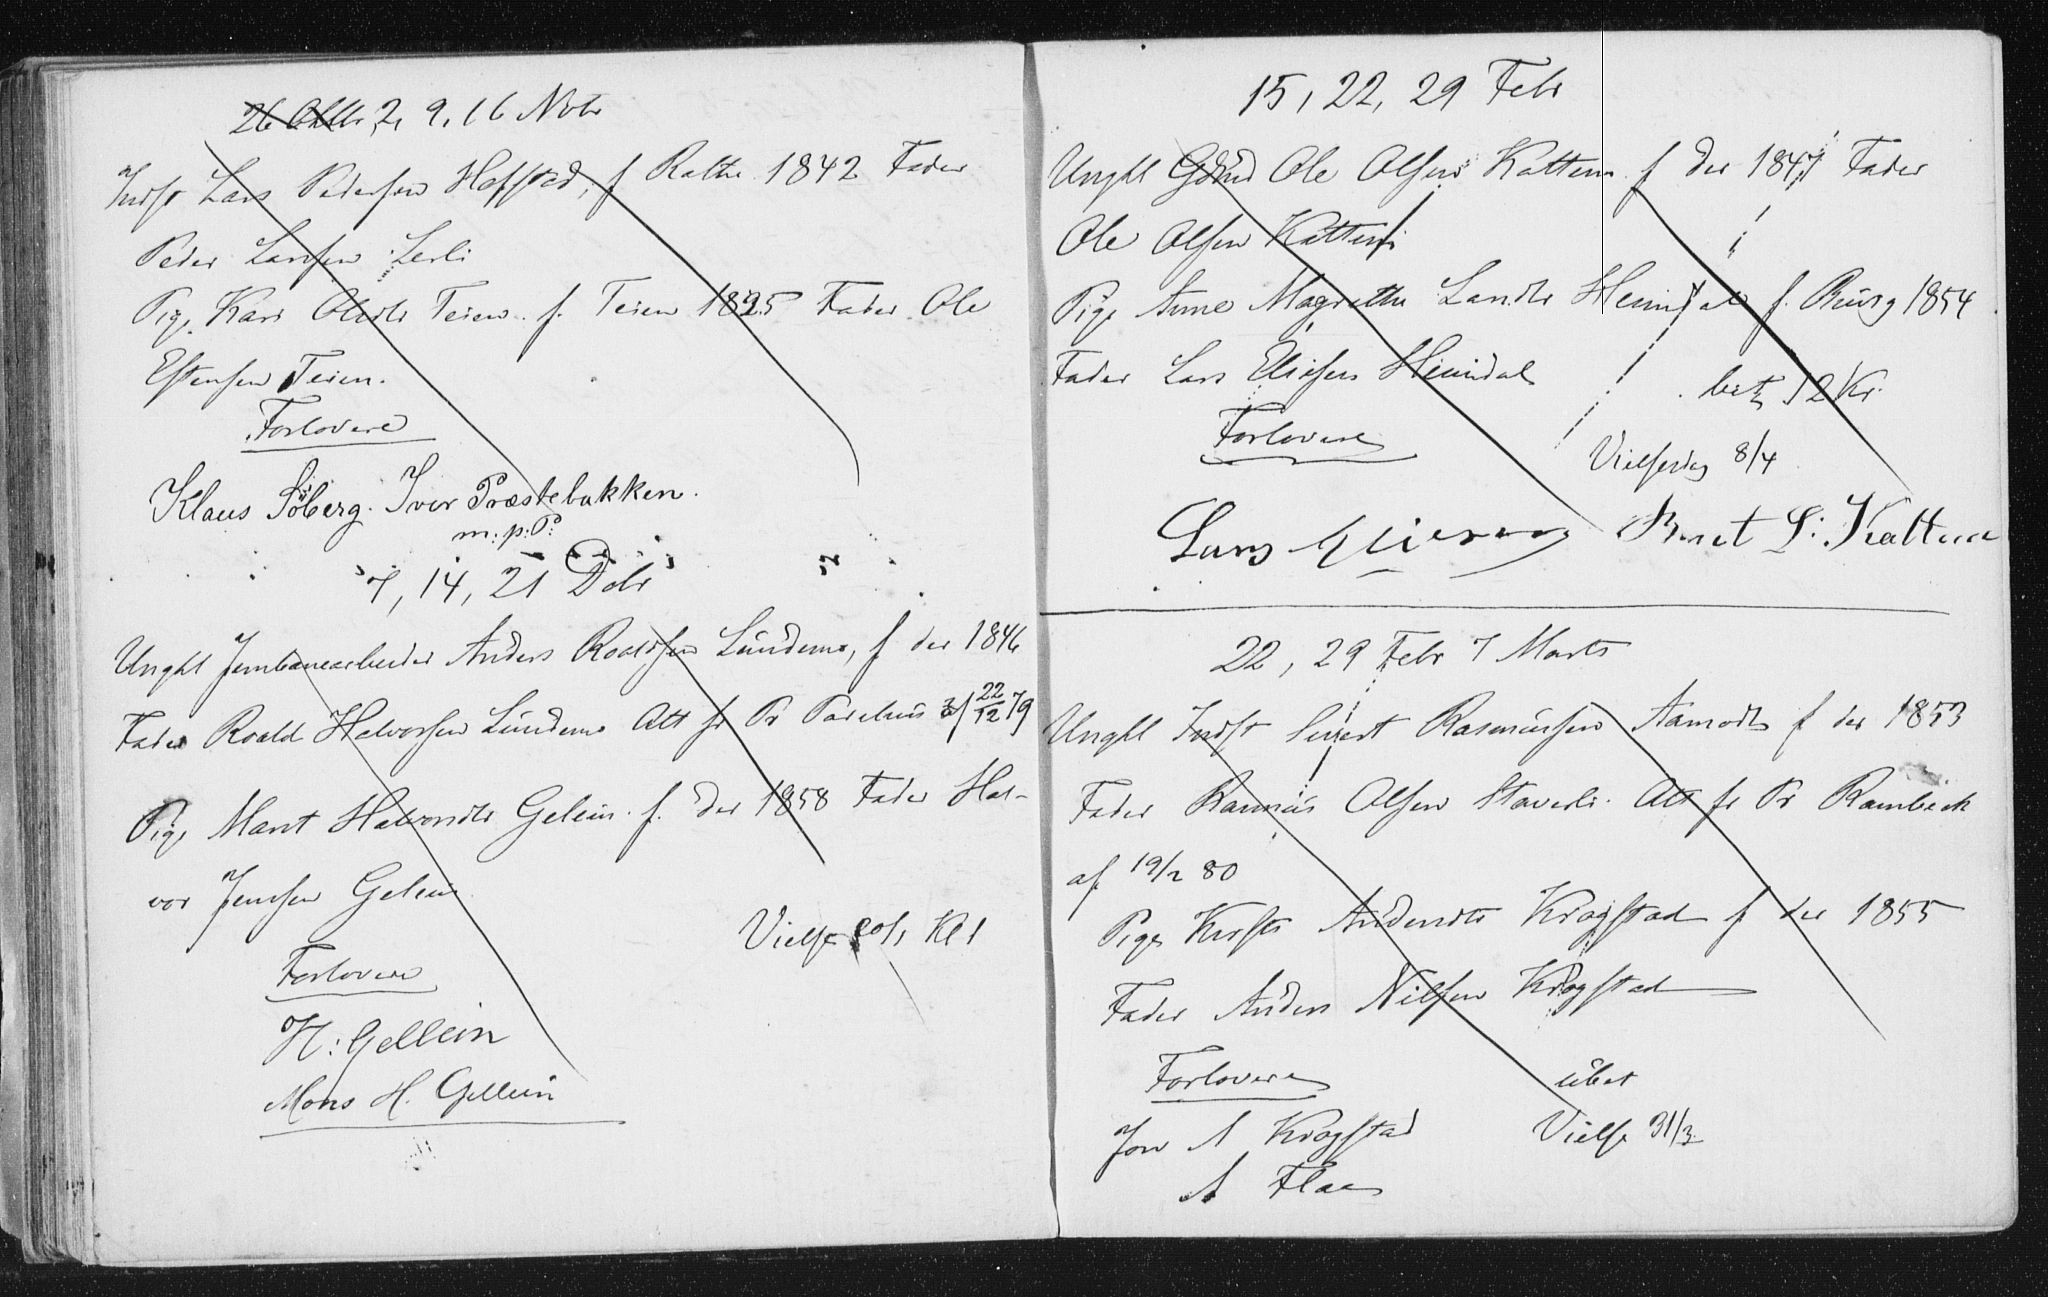 26 Oktbr 2, 9, 16 Novbr
Indst Lars Pedersen Hofstad, f Rothe 1842 Fader
Peder Larsen Lerli
Pige Kari Olsdtr Teien f. Teien 1825 Fader Ole
Estensen Teien.
Forlovere
Klaus Söberg. Iver Præstebakken.
m: p: P:
7, 14, 21 Dcbr
Ungkl Jernbanearbeider Anders Roaldsen Lundemo, f der 1846
Fader Roald Halvorsen Lundemo Att fr Pr Parelius af 22/12 79
Pige Marit Halvorsdtr Gelein. f. der 1858 Fader Hal-
vor Jensen Gelein
Vielse 20/1 Kl 1
Forlovere
H: Gellein
Mons H. Gellein
15, 22, 29 Febr
Ungkl Gdmd Ole Olsen Kattem f der 1847 Fader
Ole Olsen Kattem
Pige Anne Magrethe Larsdtr Heimdal f. Buvig 1854
Fader Lars Eliesen Heimdal
bet 12 Kr.
Forlovere
Vielsesdag 8/4
Lars Eliesen Beret L: Kattem
22, 29 Febr 7 Marts
Ungkl Indst Sivert Rasmusen Aamodt f der 1853
Fader Rasmus Olsen Staverli. Att fr Pr Rambeck
af 19/2 80
Pige Kirsti Andersdtr Krogstad f der 1855
Fader Anders Nilsen Krogstad
Forlovere
übet
Jon A Krogstad
Vielse 31/3
A Flaa